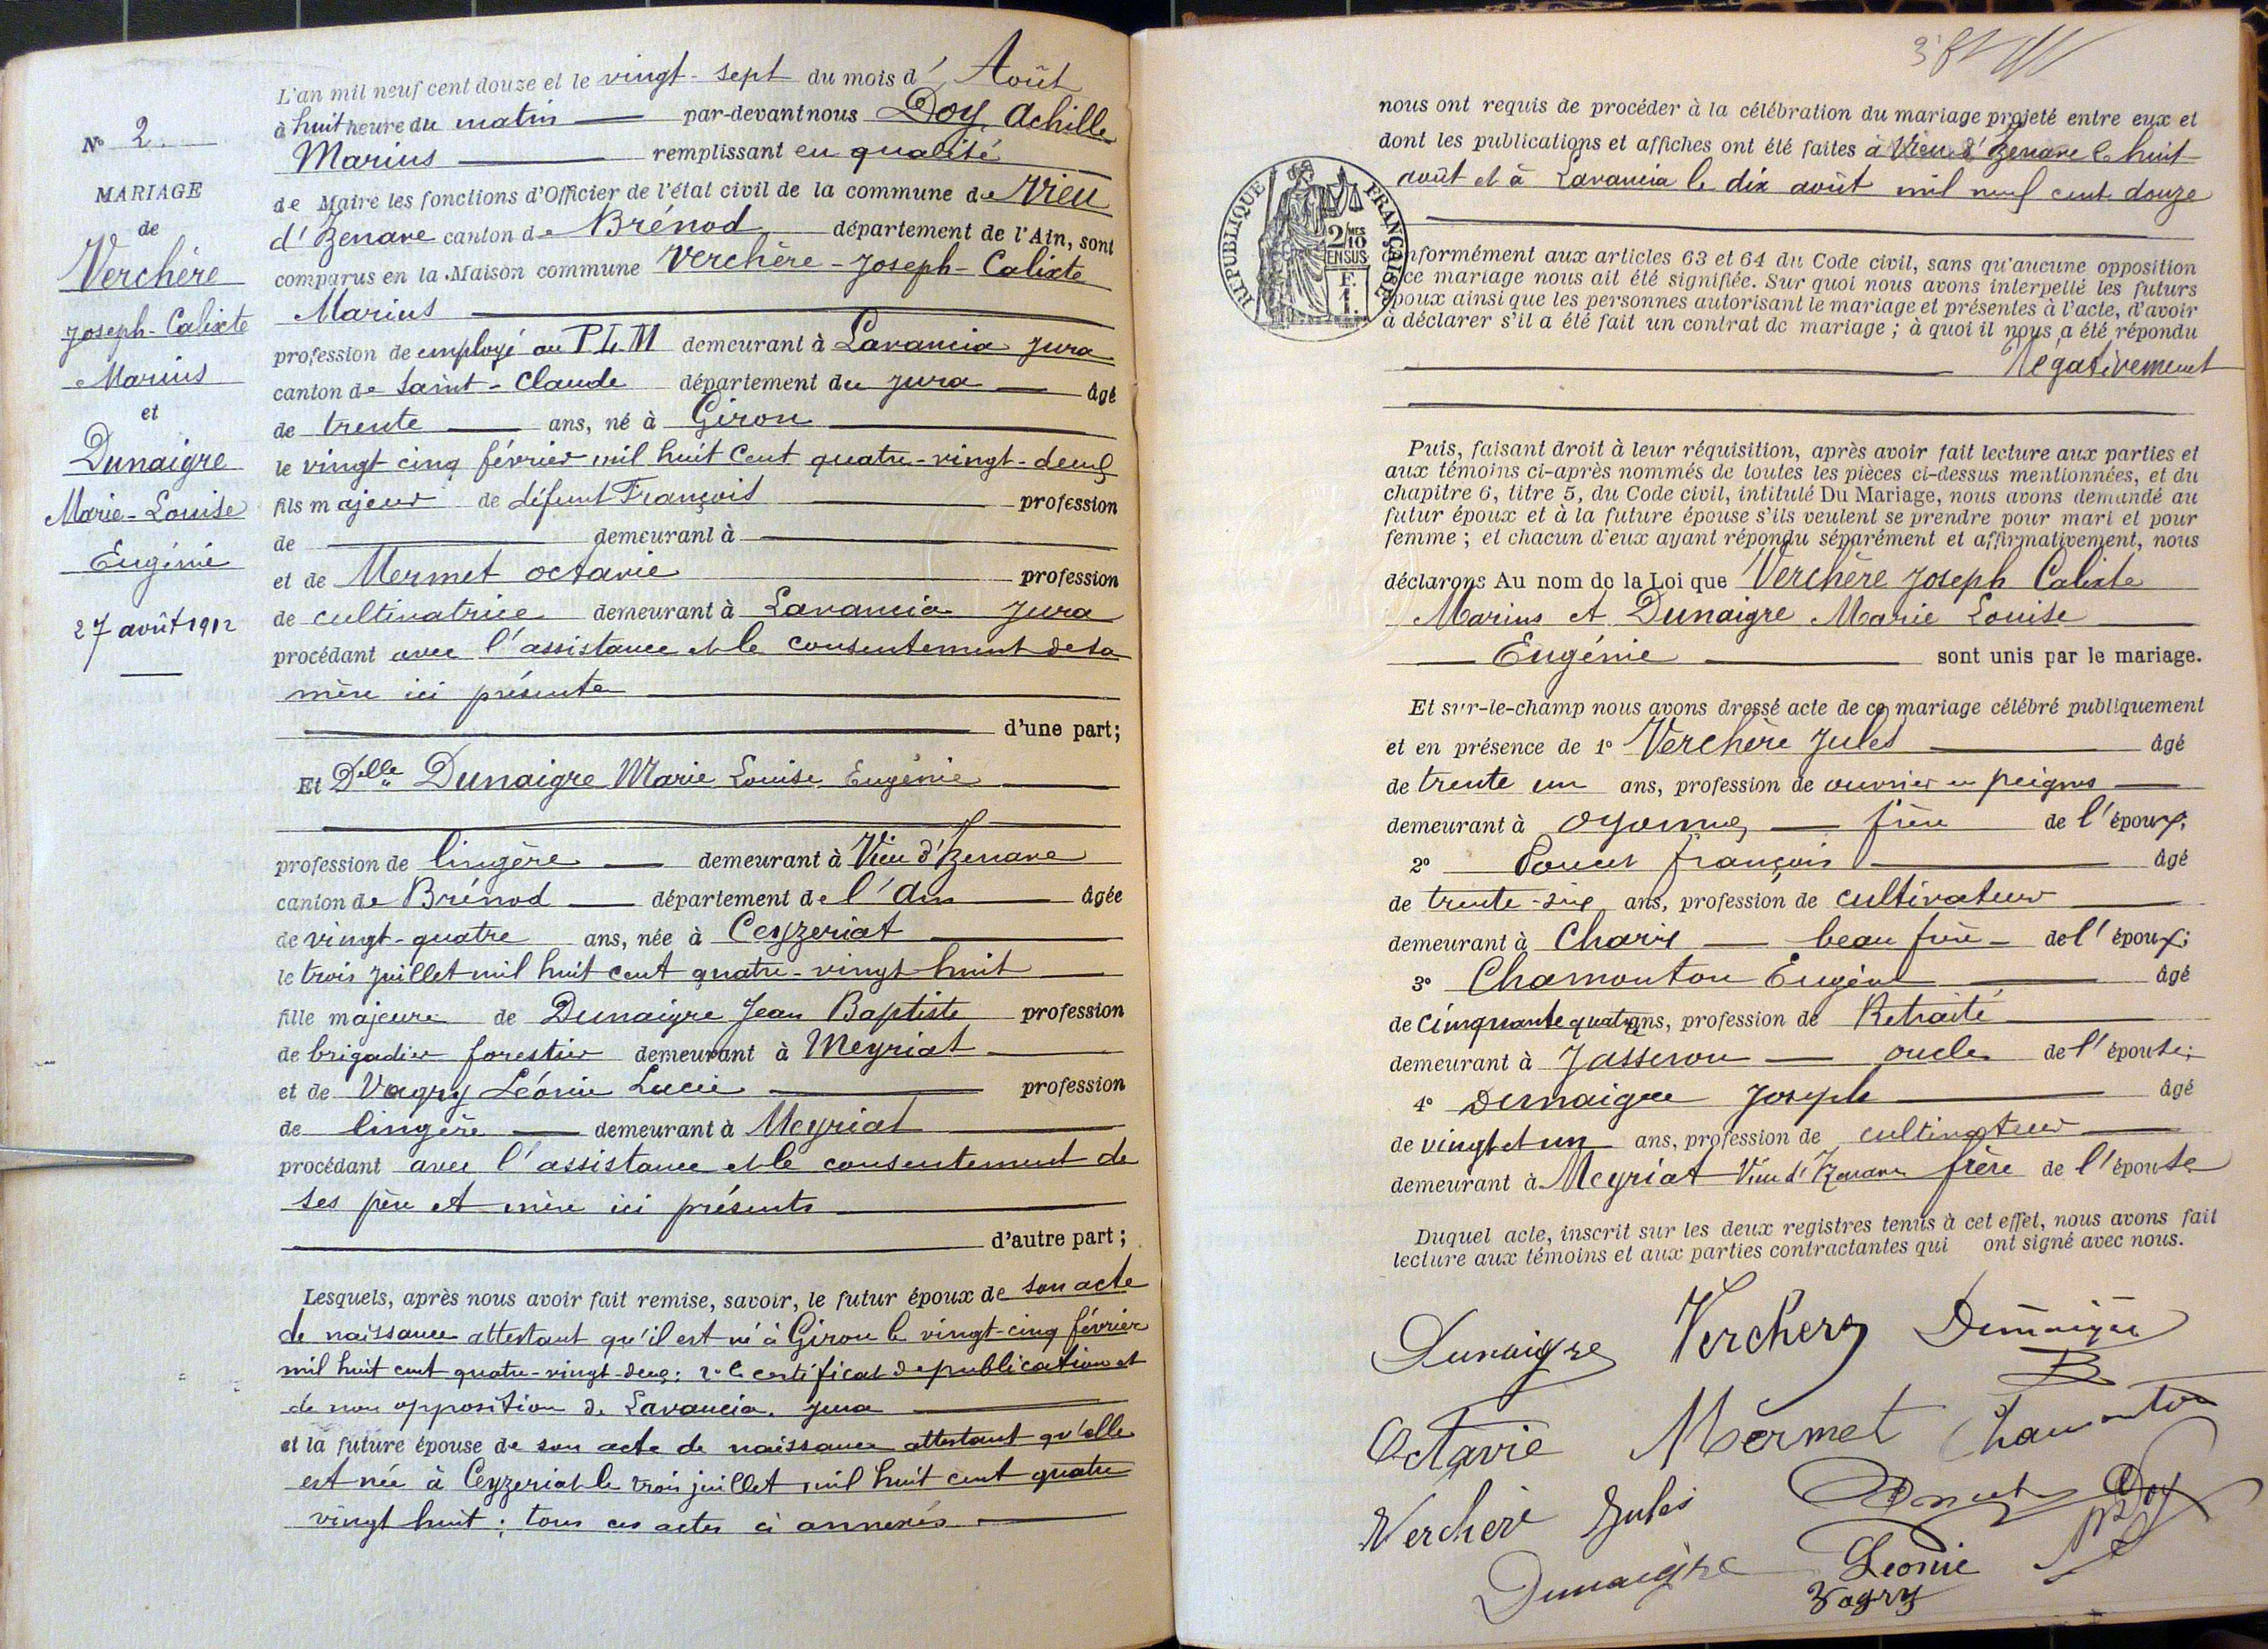 L'an mil neuf cent douze et le vingt-sept du mois d' Août
à huit heure du matin par-devant nous Doy, Achille
Marius remplissant en qualité
de Maire les fonctions d'Officier de l'état civil de la commune de Vieu
d'Izenave canton de Brénod département de l'Ain, sont
comparus en la Maison commune Verchère-Joseph-Calixte
Marius
profession de employé au P.L.M demeurant à Lavancia Jura
canton de Saint-Claude département du Jura âgé
de trente ans, né à Giron
le vingt cinq février mil huit cent quatre-vingt-deux
fils majeur de défunt François profession
de demeurant à
et de Mermet Octavie profession
de cultivatrice demeurant à Lavancia Jura
procédant avec l'assistance et le consentement de sa
mère ici présente
d'une part;
Et Delle Dunaigre Marie Louise Eugénie
profession de lingère demeurant à Vieu d'Izenave
canton de Brénod département de l'Ain âgée
de vingt-quatre ans, née à Ceyzeriat
le trois Juillet mil huit cent quatre-vingt huit
fille majeure de Dunaigre Jean Baptiste profession
de brigadier forestier demeurant à Meyriat
et de Vagry Léonie Lucie profession
de lingère demeurant à Meyriat
procédant avec l'assistance et le consentement de
ses père et mère ici présents
d'autre part;
Lesquels, après nous avoir fait remise, savoir, le futur époux de son acte
de naissance attestant qu'il est né à Giron le vingt-cinq février
mil huit cent quatre-vingt-deux; 2° le certificat de publication et
de non opposition de Lavancia. Jura
et la future épouse de son acte de naissance attestant qu'elle
est née à Ceyzeriat le trois juillet mil huit cent quatre
vingt huit; tous ces actes ci annexés
N° 2.
MARIAGE
de
Verchère
Joseph-Calixte
Marius
et
Dunaigre
Marie-Louise
Eugénie
27 août 1912
nous ont requis de procéder à la célébration du mariage projeté entre eux et
dont les publications et affiches ont été faites à Vieu d'Izenave le huit
août et à Lavancia le dix août mil neuf cent douze
RÉPUBLIQUE FRANÇAISE
2/10MES
EN SUS
F.
1.
conformément aux articles 63 et 64 du Code civil, sans qu'aucune opposition
à ce mariage nous ait été signifiée. Sur quoi nous avons interpellé les futurs
époux ainsi que les personnes autorisant le mariage et présentes à l'acte, d'avoir
à déclarer s'il a été fait un contrat de mariage; à quoi il nous a été répondu
Négativement
Puis, faisant droit à leur réquisition, après avoir fait lecture aux parties et
aux témoins ci-après nommés de toutes les pièces ci-dessus mentionnées, et du
chapitre 6, titre 5, du Code civil, intitulé Du Mariage, nous avons demandé au
futur époux et à la future épouse s'ils veulent se prendre pour mari et pour
femme; et chacun d'eux ayant répondu séparément et affirmativement, nous
déclarons Au nom de la Loi que Verchère Joseph Calixte
Marius et Dunaigre Marie Louise
Eugénie sont unis par le mariage.
Et sur-le-champ nous avons dressé acte de ce mariage célébré publiquement
et en présence de 1° Verchère Jules âgé
de trente un ans, profession de ouvrier en peignes
demeurant à Oyonnax frère de l'époux;
2° Poncet François âgé
de trente-six ans, profession de cultivateur
demeurant à Charix beau frère de l'époux;
3° Chamouton Eugène âgé
de cinquante quatre ans, profession de Retraité
demeurant à Jasseron oncle de l'épouse;
4° Dunaigre Joseph âgé
de vingt et un ans, profession de cultivateur
demeurant à Meyriat Vieu d'Izenave frère de l'épouse
Duquel acte, inscrit sur les deux registres tenus à cet effet, nous avons fait
lecture aux témoins et aux parties contractantes qui ont signé avec nous.
Dunaigre Verchère Dunaigre
Octavie Mermet Chamouton
Verchère Jules Poncet Doy
Dunaigre Leonie
Vagry